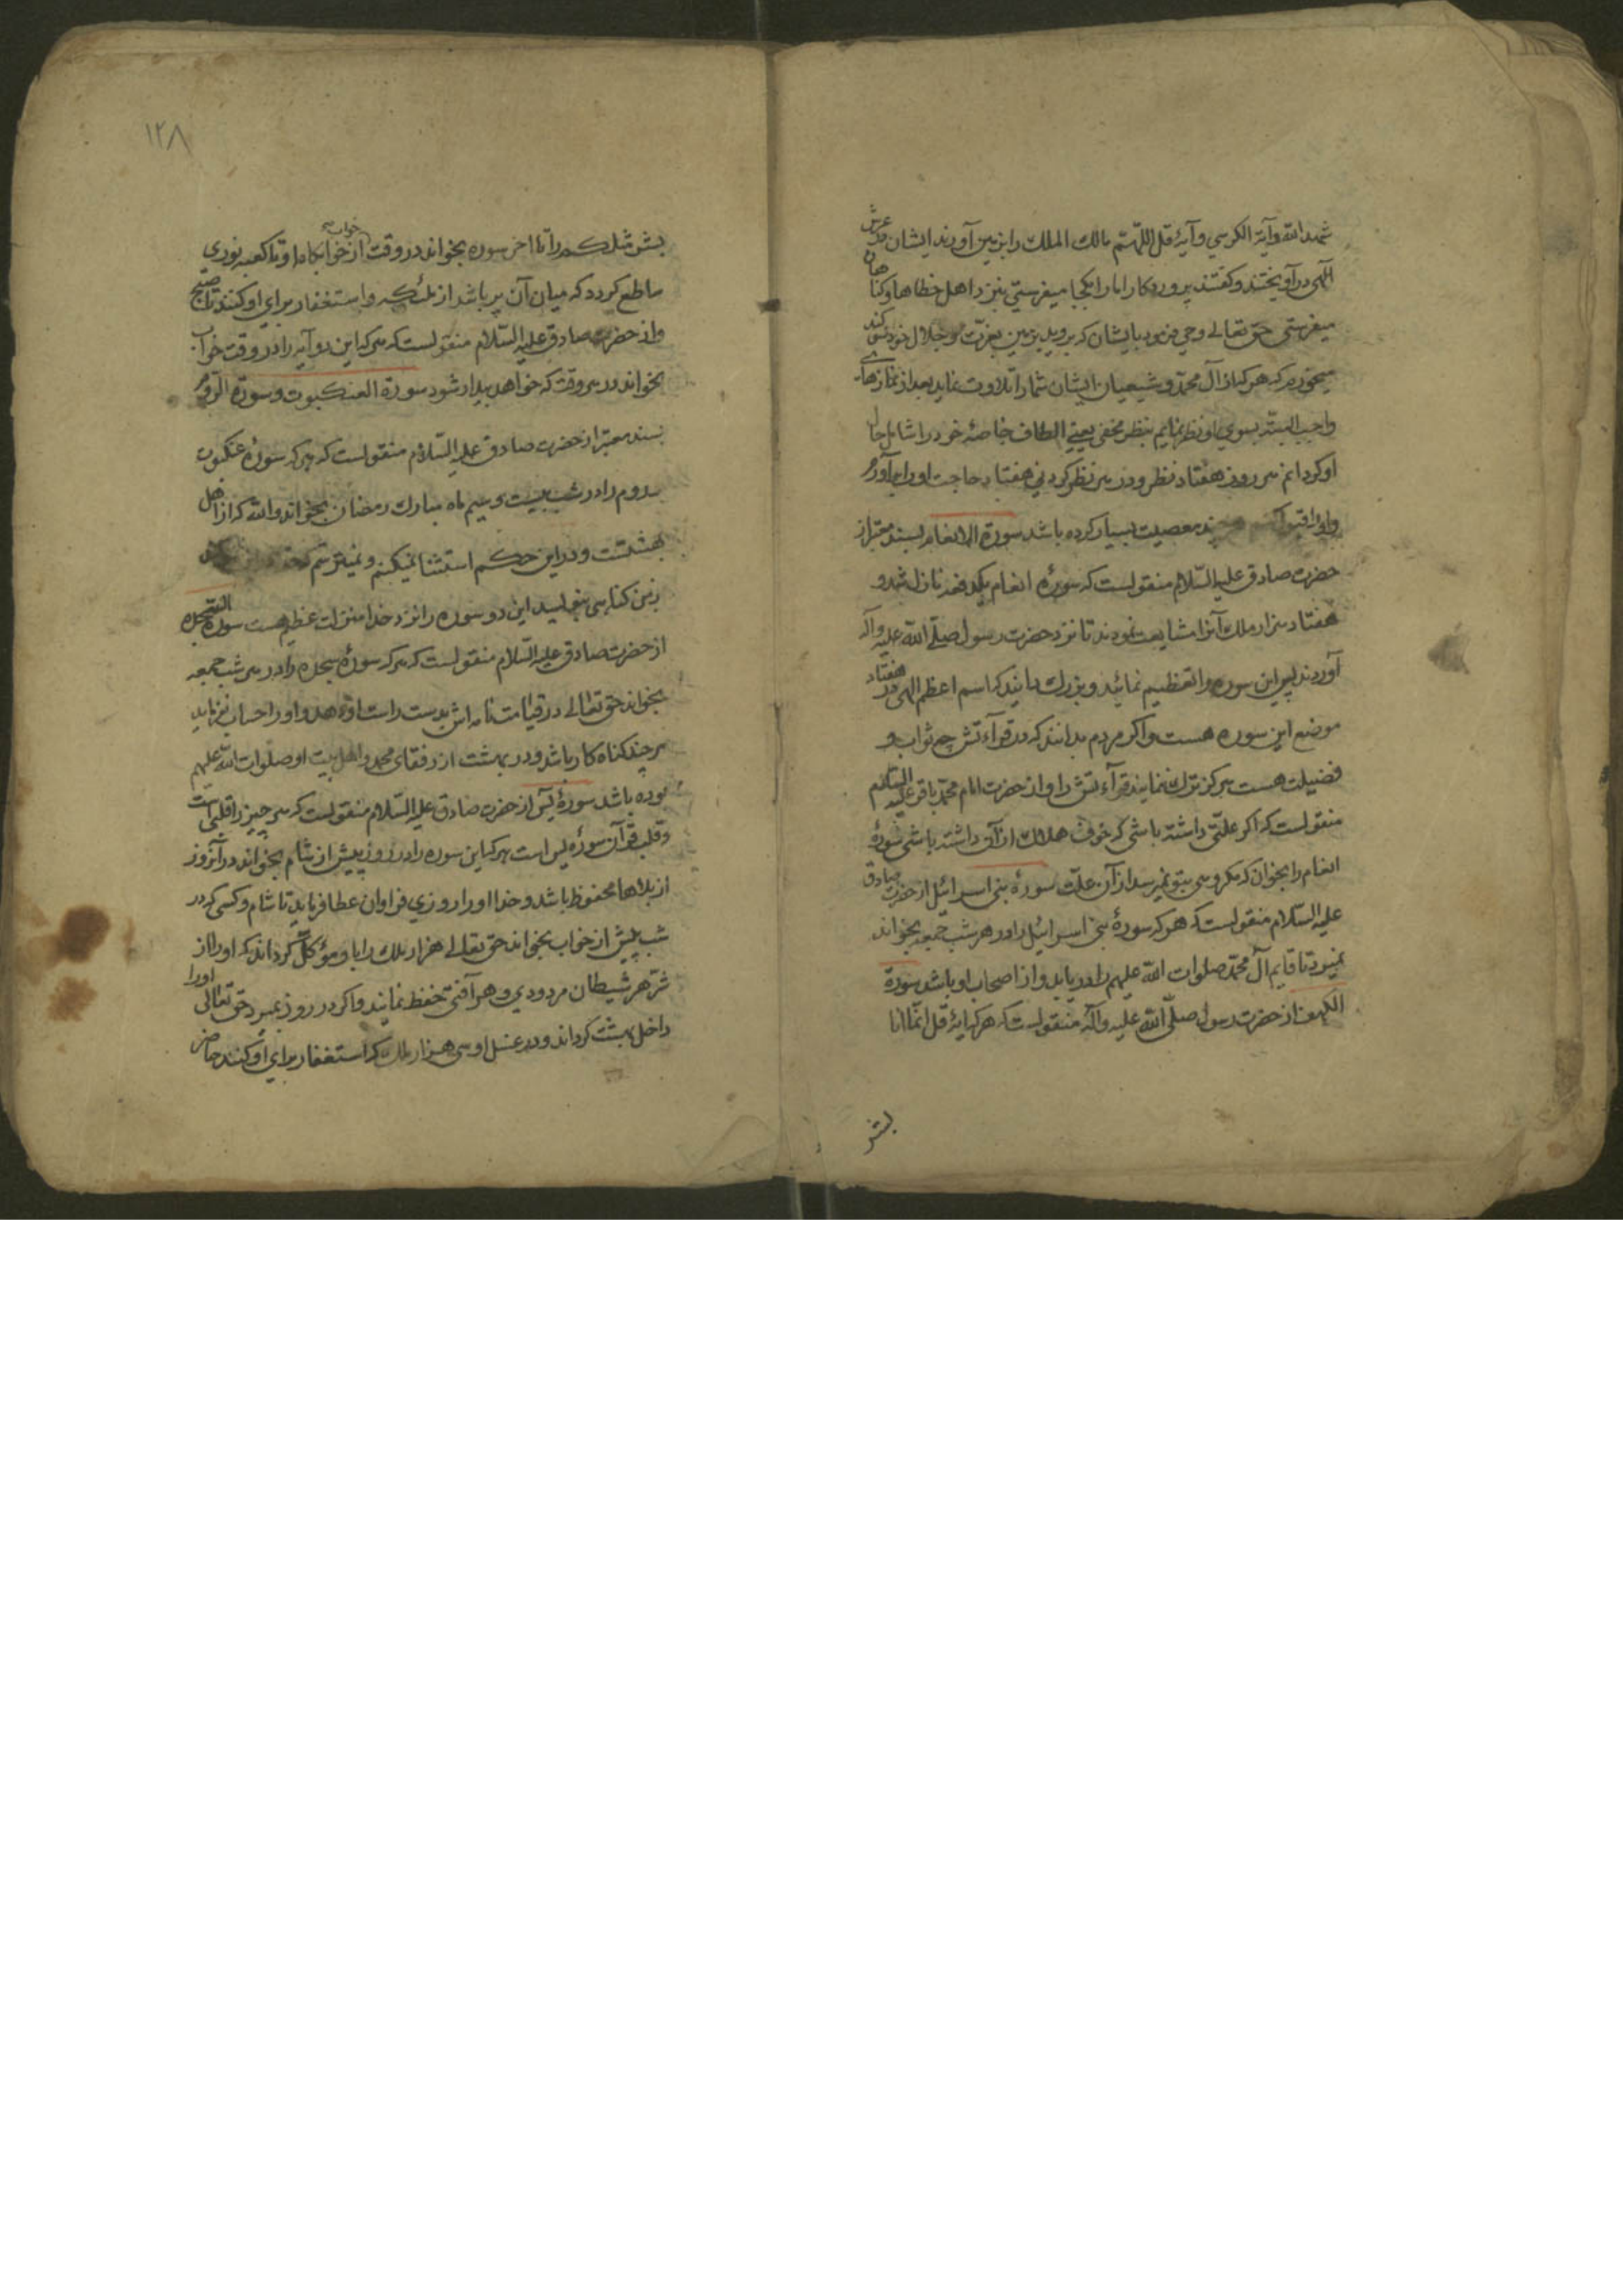 شهد الله وآیة الکرسي وآیهٔ قل اللهم مالك الملك را بزمین آورند ایشان در عرش
الهی درآویختند و کفتند پروردکارا ما را بکجا میفرستی بنزد اهل خطاها و کناهان
میفرستی حق تعالے وحی فرمود بایشان که بروید بزمین بعزت و جلال خود سوکند
میخورم که هر که از آل محمد و شیعیان ایشان شما را تلاوت نماید بعد از نمازهای
واجب البته بسوی او نظر نمایم بنظر مخفی یعنے الطاف خاصهٔ خود را شامل حال
او کردانم هر روز هفتاد نظر و در هر نظر کردنی هفتاد حاجت او را برآورم
و او را قبول چند معصیت بسیار کرده باشد سورة الانعام بسند معتبر از
حضرت صادق علیه السّلام منقولست که سورهٔ انعام یکدفعه نازل شد و
هفتاد هزار ملك آنرا مشایعت نمودند تا نزد حضرت رسول صلّے الله علیه وآله
آوردند پس این سوره را تعظیم نمائید و بزرك دانید که اسم اعظم الهی در هفتاد
موضع این سوره هست و اکر مردم بدانند که در قرآءتش چه ثواب و
فضیلت هست هرکز ترك ننمایند قرآءتش را و از حضرت امام محمد باقر علیه السّلام
منقولست که اکر علتی داشته باشی که خوف هلاك از آن داشته باشی سورهٔ
انعام را بخوان که مکروهی بتو نمیرسد از آن علّت سورهٔ بنی اسرائیل از حضرت صادق
علیه السّلام منقولست که هر که سورهٔ بنی اسرائیل را در هر شب جمعه بخواند
نمیرد تا قایم آل محمد صلوات الله علیهم را دریابد و از اصحاب او باشد سورة
الکهف از حضرت رسول صلّی الله علیه وآله منقولست که هر که آیهٔ قل انّما انا
بشر
۱۲۸
بشر مثلکم را تا اخر سوره بخواند در وقت خواب از خوابکاه او تا کعبه نوری
ساطع کردد که میان آن پر باشد از ملئکه و استغفار برای او کنند تا صبح
و از حضرت صادق علیه السّلام منقولست که هر که این دو آیه را در وقت خواب
بخواند در هر وقت که خواهد بیدار شود سورة العنکبوت و سورة الروم
بسند معتبر از حضرت صادق علیه السّلام منقولست که هر که سورهٔ عنکبوت
و روم را در شب بیست و سیم ماه مبارك رمضان بخواند والله که از اهل
بهشتست و در این حکم استثنا نمیکنم و نمیترسم که
بر من کناهی بنویسد این دو سوره را نزد خدا منزلت عظیم هست سورة السجده
از حضرت صادق علیه السّلام منقولست که هر که سورهٔ سجده را در هر شب جمعه
بخواند حق تعالے در قیامت نامه اش بدست راست او دهد و او را حساب نفرماید
هر چند کناه کار باشد و در بهشت از رفقای محمد و اهل بیت او صلوات الله علیهم
بوده باشد سورهٔ یس از حضرت صادق علیه السّلام منقولست که هر چیز را قلبی است
و قلب قرآن سورهٔ یس است هر که این سوره را در روز پیش از شام بخواند در آنروز
از بلاها محفوظ باشد و خدا او را روزی فراوان عطا فرماید تا شام و کسی که در
شب پیش از خواب بخواند حق تعالے هزار ملك را با و مؤکّل کرداند که او را از
شرّ هر شیطان مردودی و هر آفتی حفظ نمایند و اکر در روز بمیرد حق تعالی او را
داخل بهشت کرداند و در غسل او سی هزار ملك که استغفار برای او کنند حاضر